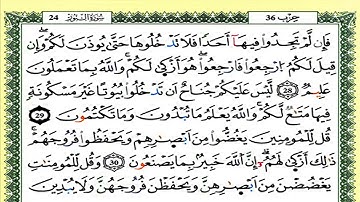 24 سُورَةُ النُّورِ حِزْب 36
فَإِن لَّمْ تَجِدُوا فِيهَا أَحَدًا فَلَا تَدْخُلُوهَا حَتَّىٰ يُوذَنَ لَكُمْ وَإِن
قِيلَ لَكُمُ ارْجِعُوا فَارْجِعُوا هُوَ أَزْكَىٰ لَكُمْ وَاللَّهُ بِمَا تَعْمَلُونَ
عَلِيمٌ 28 لَّيْسَ عَلَيْكُمْ جُنَاحٌ أَن تَدْخُلُوا بُيُوتًا غَيْرَ مَسْكُونَةٍ
فِيهَا مَتَٰعٌ لَّكُمْ وَاللَّهُ يَعْلَمُ مَا تُبْدُونَ وَمَا تَكْتُمُونَ 29
قُل لِّلْمُومِنِينَ يَغُضُّوا مِنَ ابْصَٰرِهِمْ وَيَحْفَظُوا فُرُوجَهُمْ
ذَٰلِكَ أَزْكَىٰ لَهُمْ إِنَّ اللَّهَ خَبِيرٌ بِمَا يَصْنَعُونَ 30 وَقُل لِّلْمُومِنَٰتِ
يَغْضُضْنَ مِنَ ابْصَٰرِهِنَّ وَيَحْفَظْنَ فُرُوجَهُنَّ وَلَا يُبْدِينَ